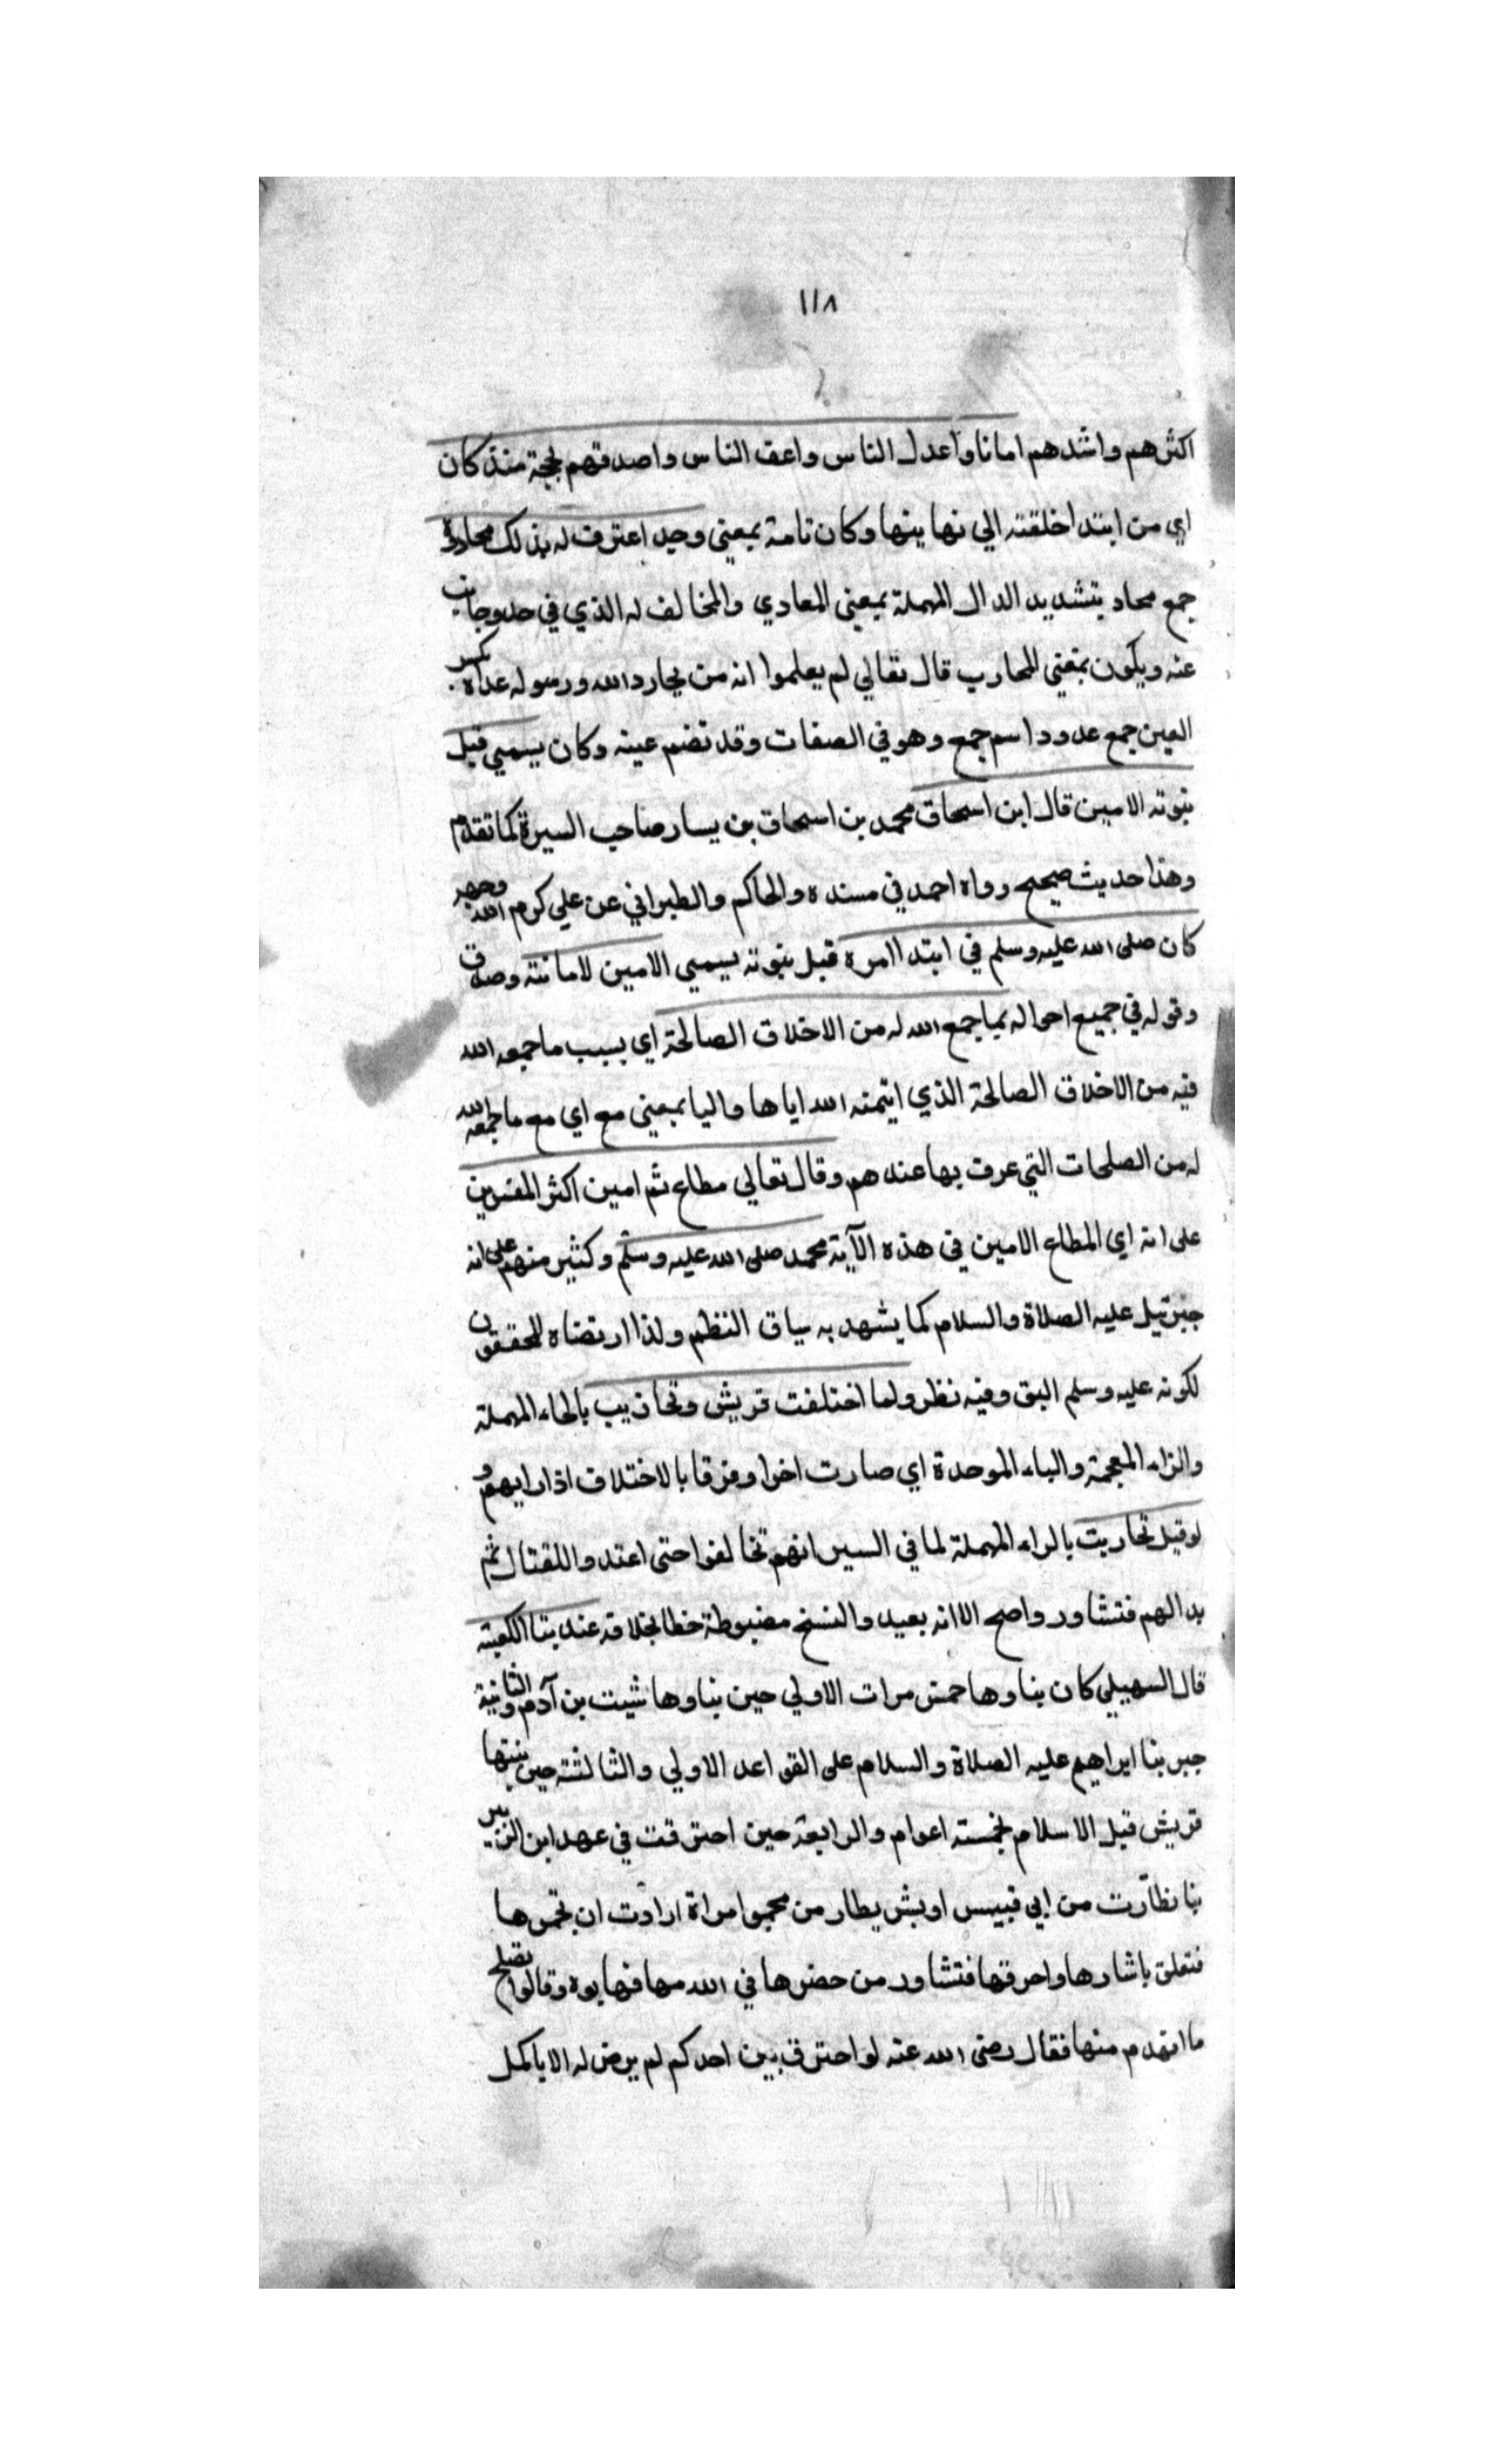 ١١٨
اكثرهم واشدهم امانا واعدل الناس واعف الناس واصدقهم لهجة منذ كان
اي من ابتدا خلقته الي نهاينها وكان تامة بمعني وجد اعترف له بذلك محادوه
جمع محاد بتشديد الدال المهملة بمعني المعادي والمخالف له الذي في حد وجانب
عنه ويكون بمعني المحارب قال تعالي لم يعلموا انه من يحادد الله ورسوله عداه بكسر
العين جمع عدو واسم جمع وهو في الصفات وقد تضم عينه وكان يسمي قبل
نبوته الامين قال ابن اسحاق محمد بن اسحاق بن يسار صاحب السيرة كما تقدم
وهذا حديث صحيح رواه احمد في مسنده والحاكم والطبراني عن علي كرم الله وجهه
كان صلى الله عليه وسلم في ابتدا امره قبل نبوته يسمي الامين لامانته وصدق
وقوله في جميع احواله بما جمع الله له من الاخلاق الصالحة اي بسبب ما جمعه الله
فيه من الاخلاق الصالحة الذي ايتمنه الله اياها واليا بمعني مع اي مع ما جمعه الله
له من الصلحات التي عرف بها عندهم وقال تعالي مطاع ثم امين اكثر المفسرين
على انه اي المطاع الامين في هذه الآية محمد صلى الله عليه وسلم وكثير منهم على انه
جبرئيل عليه الصلاة والسلام كما يشهد به سياق النظم ولذا ارتضاه المحققون
لكونه عليه وسلم اليق وفيه نظر ولما اختلفت قريش وتحازبب بالحاء المهملة
والزاء المعجمة والباء الموحدة اي صارت اخرا وفرقا بالاختلاف اذا رايهم و
لو قيل تحاربت بالراء المهملة لما في السير انهم تخالفوا حتى اعتدوا للقتال ثم
بدا لهم فتشاور واصح الا انه بعيد والنسخ مضبوطة خطا بخلافه عند بنا الكعبة
قال السهيلي كان بناوها خمس مرات الاولي حين بناوها شيث بن آدم والثانية
حين بنا ابراهيم عليه الصلاة والسلام على القواعد الاولي والثالثة حين بنتها
قريش قبل الاسلام بخمسة اعوام والرابعة حين احترقت في عهد ابن الزبير
بنا نظارت من ابي قبيس اوبش يطار من مجمر امراة ارادت ان تجمرها
فتعلق باشارها واحرقها فتشاور من حضرها في الله مها فهابوه وقالوا نصلح
ما انهدم منها فقال رضى الله عنه لو احترق بين احدكم لم يرض له الا باكمل